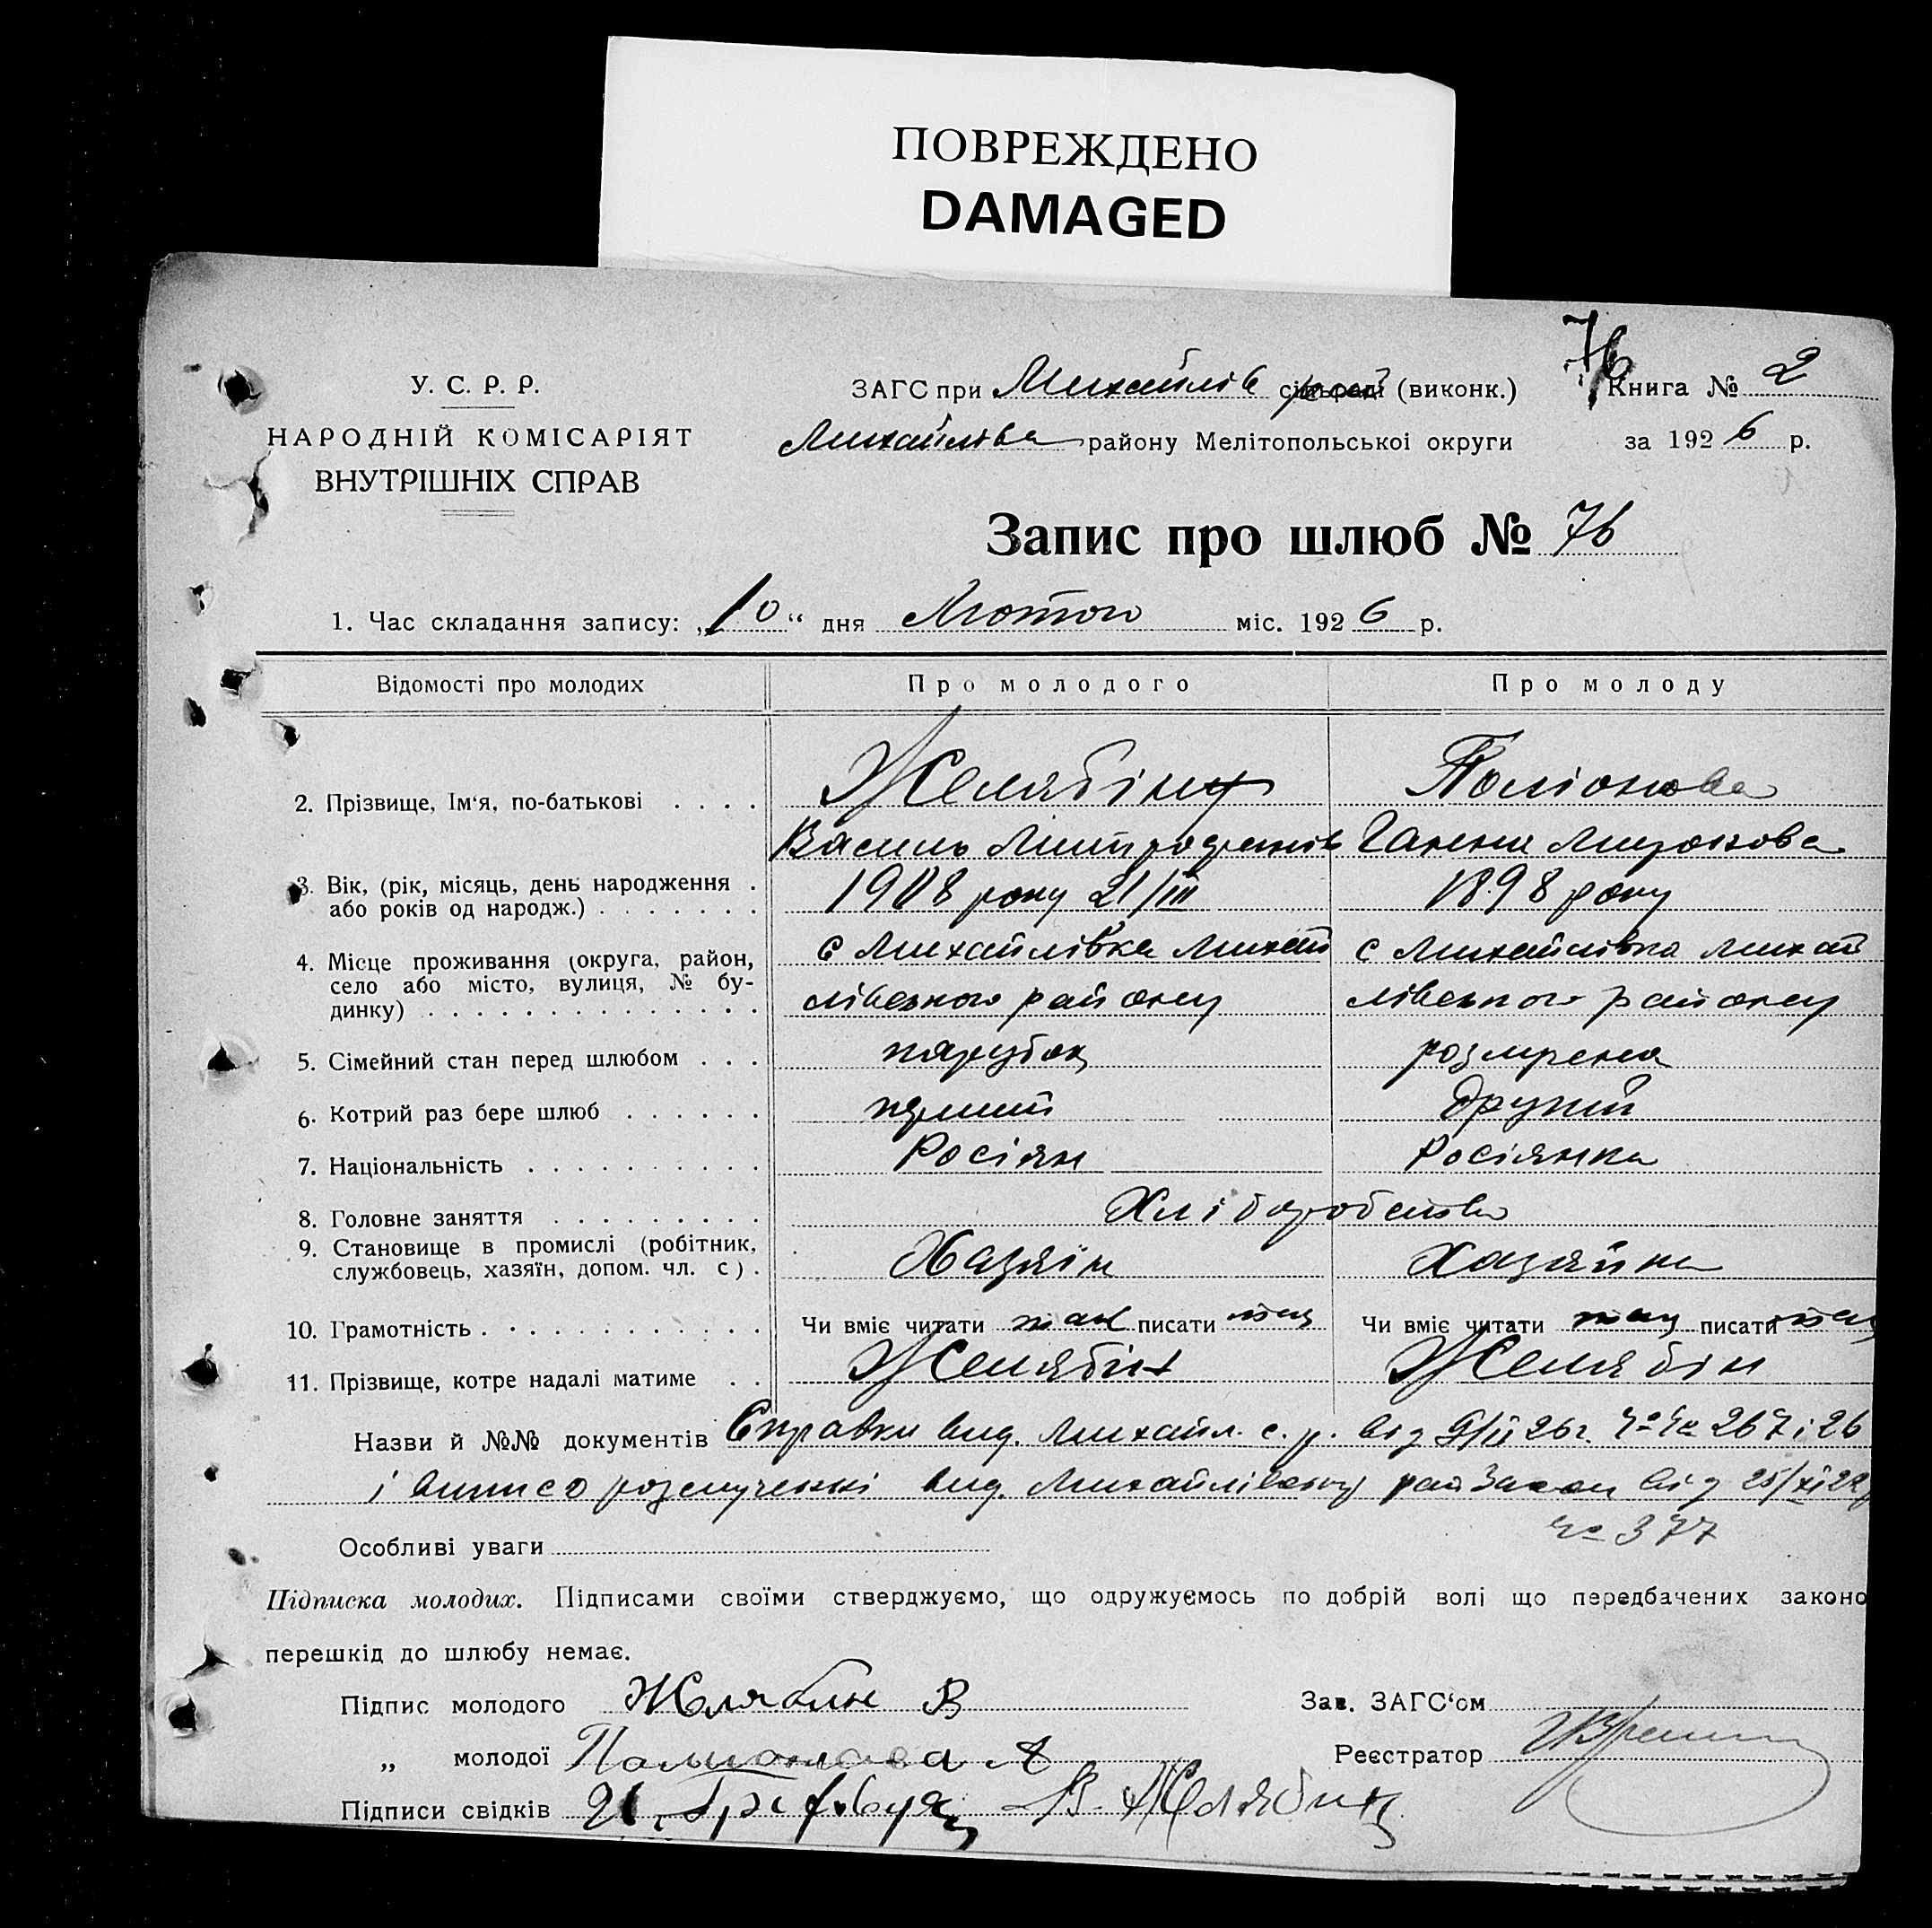 ПОВРЕЖДЕНО
DAMAGED
76
У. С. Р. Р.
НАРОДНІЙ КОМІСАРІЯТ
ВНУТРІШНІХ СПРАВ
ЗАГС при Михайлів (виконк.)
Михайлівс району Мелітопольської округи
Книга № 2
за 1926 р.
Запис про шлюб № 76
1. Час складання запису: „10“ дня Лютого міс. 1926 р.
Відомості про молодих Про молодого Про молоду
2. Прізвище, Ім‘я, по-батькові . . . . Желябін Поліонова
Василь Митрофанів Ганна
3. Вік, (рік, місяць, день народження . або років од народж.) . . . . . . . 1908 року 21/III 1898 року
4. Місце проживання (округа, район, село або місто, вулиця, № будинку) . . . . . . . . . . . . . . с Михайлівка Михай с Михайлівка Михай
лівського району лівського району
5. Сімейний стан перед шлюбом . . . парубок
6. Котрий раз бере шлюб . . . . . . перший другий
7. Національність . . . . . . . . . . Росіян Росіянка
8. Головне заняття . . . . . . . . . Хліборобство
9. Становище в промислі (робітник, службовець, хазяїн, допом. чл. с) . Хазяїн Хазяйка
10. Грамотність . . . . . . . . . . . . Чи вміє читати так писати так Чи вміє читати так писати так
11. Прізвище, котре надалі матиме . . Желябін Желябін
Назви й №№ документів Справки вид. Михайл. с. р. від 9/II 26 г. № № 267 і 26
і вид. Михайлівським від 25/XI 22
№ 377
Особливі уваги
Підписка молодих. Підписами своїми стверджуємо, що одружуємось по добрій волі що передбачених законо
перешкід до шлюбу немає.
Підпис молодого Желябин В
Зав. ЗАГС‘ом
„ молодої А
Реєстратор
Підписи свідків В. Желябин